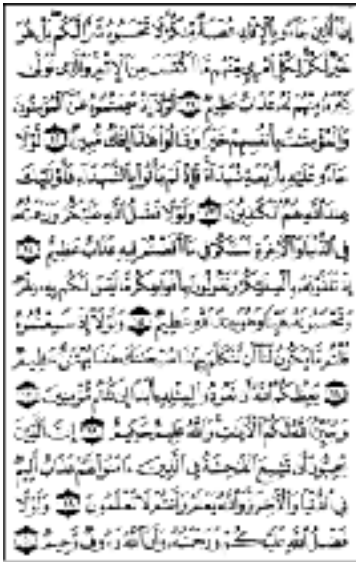 إِنَّ الَّذِينَ جَاءُو بِالْإِفْكِ عُصْبَةٌ مِّنكُمْ لَا تَحْسَبُوهُ شَرًّا لَّكُم بَلْ هُوَ
خَيْرٌ لَّكُمْ لِكُلِّ امْرِئٍ مِّنْهُم مَّا اكْتَسَبَ مِنَ الْإِثْمِ وَالَّذِي تَوَلَّىٰ
كِبْرَهُ مِنْهُمْ لَهُ عَذَابٌ عَظِيمٌ لَّوْلَا إِذْ سَمِعْتُمُوهُ ظَنَّ الْمُؤْمِنُونَ
وَالْمُؤْمِنَٰتُ بِأَنفُسِهِمْ خَيْرًا وَقَالُوا هَٰذَا إِفْكٌ مُّبِينٌ لَّوْلَا
جَاءُو عَلَيْهِ بِأَرْبَعَةِ شُهَدَاءَ فَإِذْ لَمْ يَأْتُوا بِالشُّهَدَاءِ فَأُولَٰئِكَ
عِندَ اللَّهِ هُمُ الْكَٰذِبُونَ وَلَوْلَا فَضْلُ اللَّهِ عَلَيْكُمْ وَرَحْمَتُهُ
فِي الدُّنْيَا وَالْآخِرَةِ لَمَسَّكُمْ فِي مَا أَفَضْتُمْ فِيهِ عَذَابٌ عَظِيمٌ
إِذْ تَلَقَّوْنَهُ بِأَلْسِنَتِكُمْ وَتَقُولُونَ بِأَفْوَاهِكُم مَّا لَيْسَ لَكُم بِهِ عِلْمٌ
وَتَحْسَبُونَهُ هَيِّنًا وَهُوَ عِندَ اللَّهِ عَظِيمٌ وَلَوْلَا إِذْ سَمِعْتُمُوهُ
قُلْتُم مَّا يَكُونُ لَنَا أَن نَّتَكَلَّمَ بِهَٰذَا سُبْحَٰنَكَ هَٰذَا بُهْتَٰنٌ عَظِيمٌ
يَعِظُكُمُ اللَّهُ أَن تَعُودُوا لِمِثْلِهِ أَبَدًا إِن كُنتُم مُّؤْمِنِينَ
وَيُبَيِّنُ اللَّهُ لَكُمُ الْآيَٰتِ وَاللَّهُ عَلِيمٌ حَكِيمٌ إِنَّ الَّذِينَ
يُحِبُّونَ أَن تَشِيعَ الْفَٰحِشَةُ فِي الَّذِينَ ءَامَنُوا لَهُمْ عَذَابٌ أَلِيمٌ
فِي الدُّنْيَا وَالْآخِرَةِ وَاللَّهُ يَعْلَمُ وَأَنتُمْ لَا تَعْلَمُونَ وَلَوْلَا
فَضْلُ اللَّهِ عَلَيْكُمْ وَرَحْمَتُهُ وَأَنَّ اللَّهَ رَءُوفٌ رَّحِيمٌ